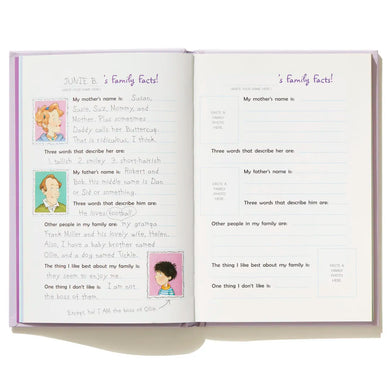 JUNIE B. 's Family Facts!
(WRITE YOUR NAME HERE.)
My mother's name is: Susan,
Susie, Suz, Mommy, and
Mother. Plus sometimes
Daddy calls her Buttercup.
That is ridiculous, I think.
Three words that describe her are:
1. tallish 2. smiley 3. short-hairish
My father's name is: Robert and
Bob. His middle name is Dan
or Sid or something.
Three words that describe him are:
He loves football.
Other people in my family are: my grampa
Frank Miller and his lovely wife, Helen.
Also, I have a baby brother named
Ollie, and a dog named Tickle.
The thing I like best about my family is:
they seem to enjoy me.
One thing I don't like is: I am not
the boss of them.
Except ha! I AM the boss of Ollie.
's Family Facts!
(WRITE YOUR NAME HERE.)
My mother's name is:
PASTE A
FAMILY
PHOTO
HERE
Three words that describe her are:
My father's name is:
PASTE A
FAMILY
PHOTO
HERE
Three words that describe him are:
Other people in my family are:
The thing I like best about my family is:
PASTE A
FAMILY
PHOTO
HERE
One thing I don't like is: